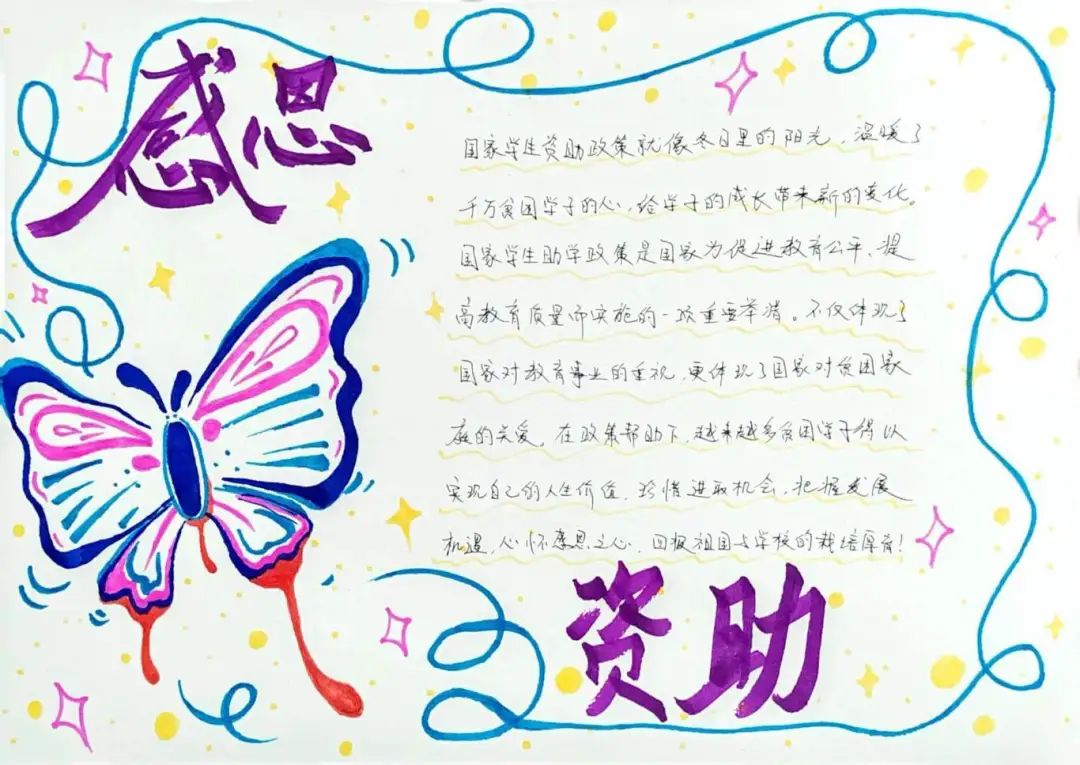 感恩
国家学生资助政策就像冬日里的阳光，温暖了
千万贫困学子的心，给学子的成长带来新的变化。
国家学生助学政策是国家为促进教育公平、提
高教育质量而实施的一项重要举措。不仅体现了
国家对教育事业的重视，更体现了国家对贫困家
庭的关爱。在政策帮助下，越来越多贫困学子得以
实现自己的人生价值，珍惜进取机会，把握发展
机遇，心怀感恩之心，回报祖国与学校的栽培厚育！
资助